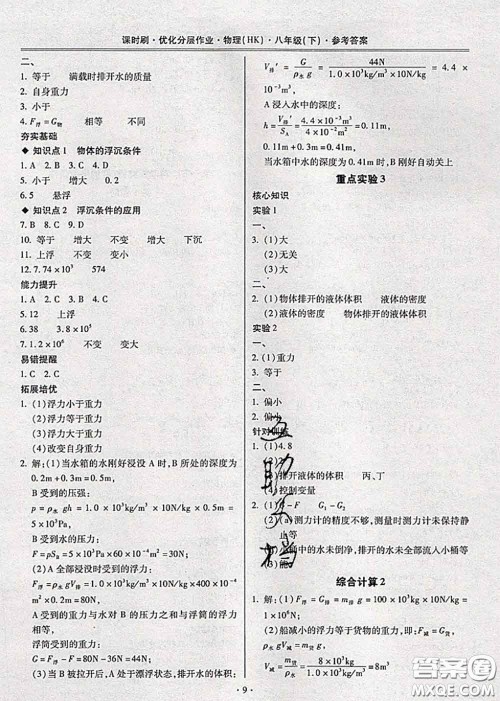 课时刷·优化分层作业·物理(HK)·八年级(下)·参考答案
二、
1. 等于 满载时排开水的质量
2. 自身重力
3. 小于
4. F浮=G物 相等 不同
夯实基础
◆ 知识点1 物体的浮沉条件
1. A 2. B 3. C 4. D
5. 小于 增大 0.2
6. 5 悬浮
◆ 知识点2 浮沉条件的应用
7. B 8. C 9. D
10. 等于 增大 不变 增大 下沉
11. 上浮 不变 变小
12. 7.74×10³ 574
能力提升
1. A 2. B 3. C 4. D
5. 12 上浮
6. 38 3.8×10³
7. 1.2×10⁶ 不变 变大
易错提醒
拓展培优
1. (1)浮力小于重力
(2)浮力大于重力
(3)浮力大于重力
(4)改变自身重力
2. 解:(1)当水箱的水刚好浸没A时,B所处的深度为
0.2m+0.3m=0.5m
B受到的压强:
p=ρ水gh=1.0×10³kg/m³×10N/kg×0.5m=
5×10³Pa
B受到水的压力:
F=pSB=5×10³Pa×60×10⁻⁴m²=30N
(2)A全部浸没时受到的浮力:
F浮=ρ水gV排=1.0×10³kg/m³×10N/kg×400×10⁻⁴
m²×0.2m=80N
A受到的重力与水对B的压力之和与浮筒的浮力
相等,
浮筒受到的重力:
G=F浮-F=80N-36N=44N
(3)当B被拉开后,A处于漂浮状态,排开水的体积:
V排′=G/ρ水g=44N/1.0×10³kg/m³×10N/kg=4.4×
10⁻³m³,
A浸入水中的深度:
h=V排′/SA=4.4×10⁻³m³/4×10⁻²m²=0.11m,
0.11m+0.3m=0.41m
当水箱中水的深度为0.41m时,B刚好自动关上
重点实验3
核心知识
实验1
一、
3. (1)大
(2)无关
(3)大
二、
(1)物体排开的液体体积 液体的密度
(2)液体的密度 物体排开的液体体积
实验2
一、
2. (1)重力
3. 等于
二、
1. 偏小
2. 偏小
针对训练
1. (1)4.8
(3)排开液体的体积 丙、丁
(4)控制变量
2. (1)F浮 G₁-G₂
(2)(a)测力计的精度不够,测量时测力计未保持静
止等
桶中的水未倒净,排开的水未全部流入小桶等
(3)能
综合计算2
1. 解:(1)F浮=G排=m排g=100×10³kg×10N/kg=
1×10⁶N;
(2)船减小的浮力等于货物的重力,即:F减=G货,
V减=m货/ρ水=8×10³kg/1.0×10³kg/m³=8m³
五
助
文
档
·9·
答案圈
MXQE.COM